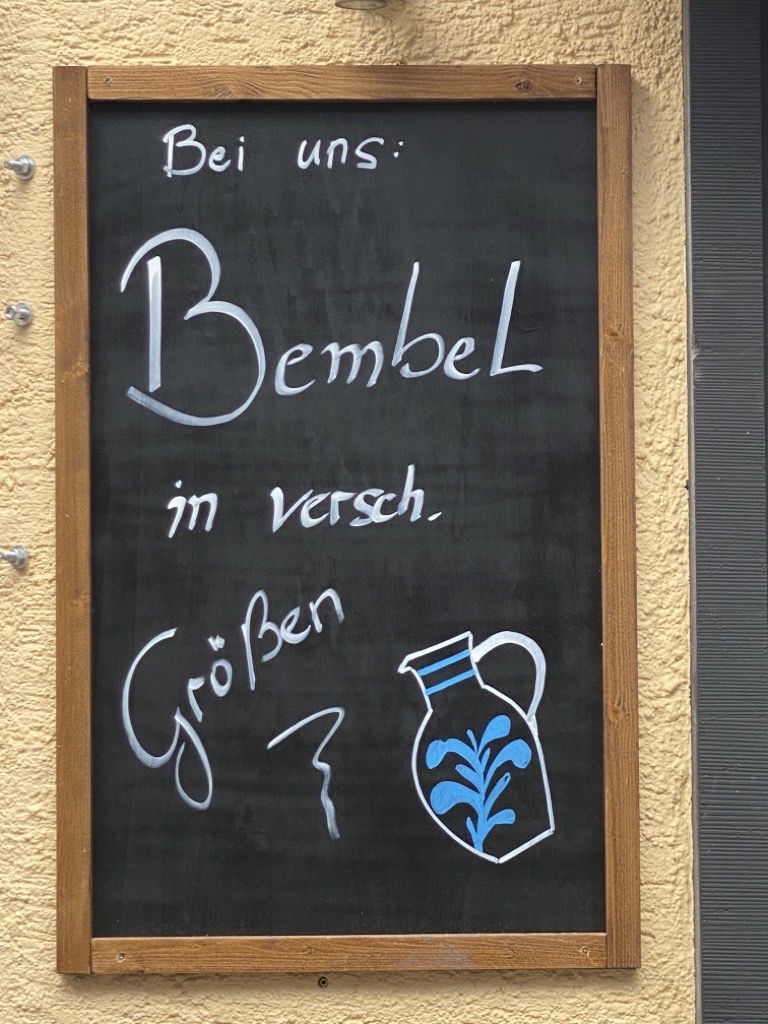 Bei uns:
Bembel
in versch.
Größen